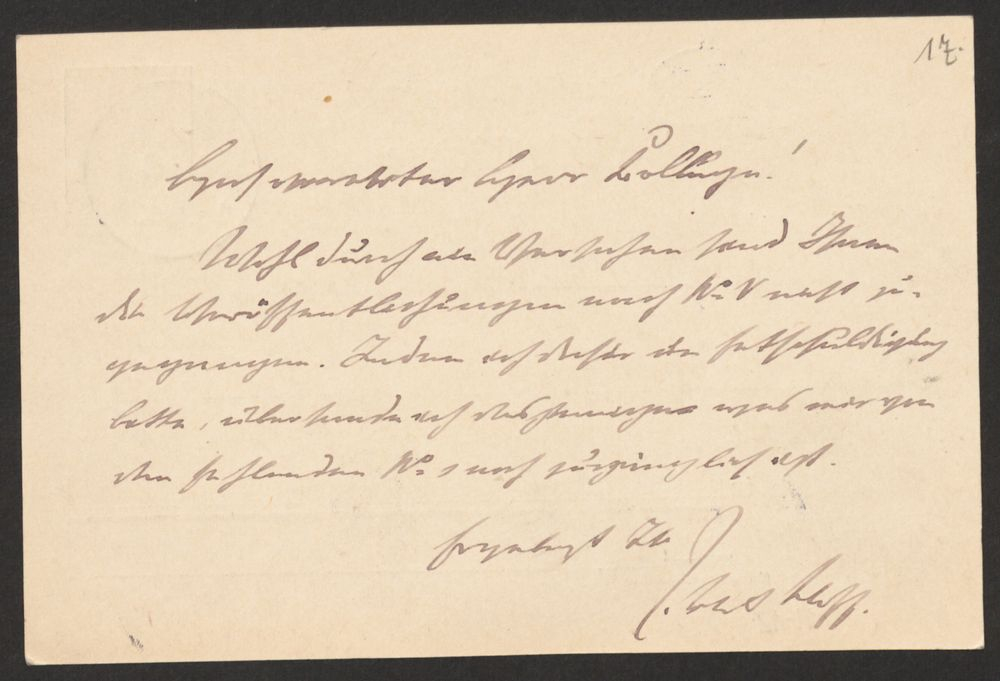 17.
Hochverehrter Herr College!
Wohl durch ein Versehen sind Ihnen
die Veröffentlichungen nach No V nicht zu-
gegangen. Indem ich dieses zu entschuldigen
bitte, übersende ich diejenigen was mir von
den fehlenden No noch zugänglich ist.
Ergebenst Ihr